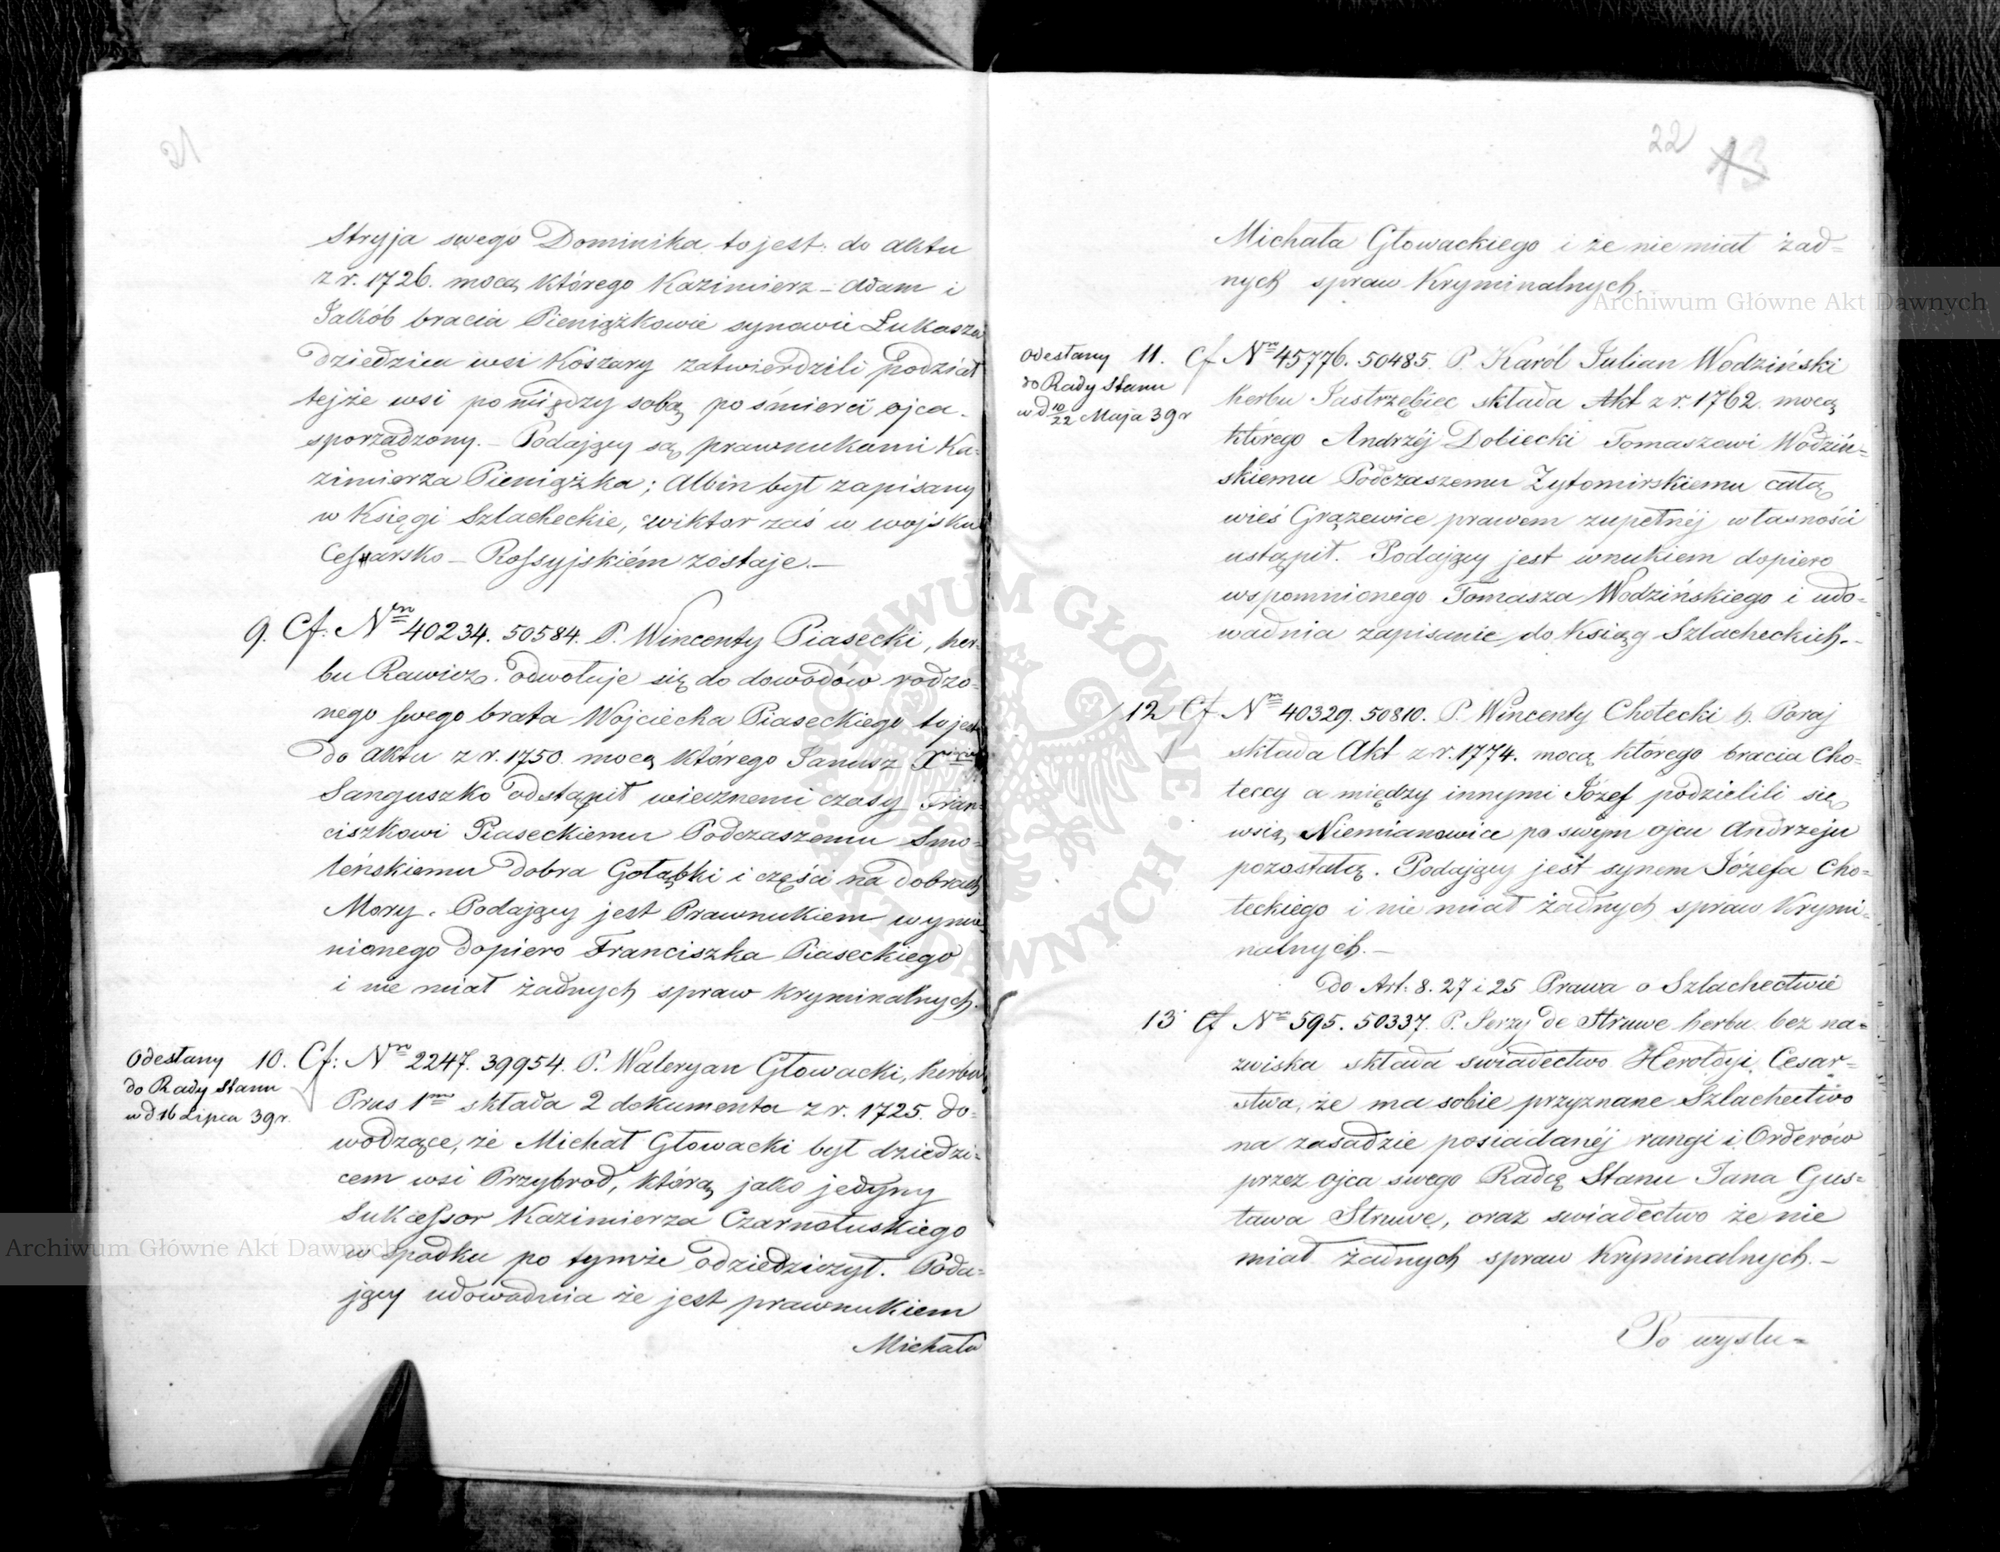 21
Stryja swego Dominika to jest: do aktu
z r. 1726. mocą którego Kazimierz – Adam i
Jakób bracia Pieniążkowie synowie Łukasza
dziedzica wsi Koszary zatwierdzili podział
tejże wsi pomiędzy sobą po śmierci ojca
sporządzony. – Podający są prawnukami Ka-
zimierza Pieniążka; Albin był zapisany
w Księgi Szlacheckie, Wiktor zaś w wojsku
Cesarsko – Rossyjskiém zostaje. –
9. Cf: Nrn 40234. 50584. P. Wincenty Piasecki, her-
bu Rawicz. odwołuje się do dowodów rodzo-
nego swego brata Wojciecha Piaseckiego to jest
do aktu z r. 1750. mocą którego Janusz
Sanguszko odstąpił wiecznemi czasy Fran-
ciszkowi Piaseckiemu Podczaszemu Smo-
leńskiemu dobra Gołąbki i części na dobrach
Mory. Podający jest Prawnukiem wymie-
nionego dopiero Franciszka Piaseckiego
i nie miał żadnych spraw kryminalnych.
Odesłany
do Rady Stanu
w d 16 Lipca 39 r.
10. Cf: Nrn 2247. 39954. P. Waleryan Głowacki, herbu
Prus 1mo składa 2 dokumenta z r. 1725. do-
wodzące, że Michał Głowacki był dziedzi-
cem wsi Przybrod, którą jako jedyny
Sukcessor Kazimierza Czarnołuskiego
w spadku po tymże odziedziczył. Poda-
jący udowadnia że jest prawnukiem
Michała
22 13
Michała Głowackiego i że nie miał żad-
nych spraw Kryminalnych.
Odesłany
do Rady Stanu
w d 10/22 Maja 39 r
11. Cf Nrn 45776. 50485. P. Karól Julian Wodziński
herbu Jastrzębiec składa Akt z r. 1762. mocą
którego Andrzéj Dobiecki Tomaszowi Wodziń-
skiemu Podczaszemu Żytomirskiemu całą
wieś Grązewice prawem zupełnéj własności
ustąpił. Podający jest wnukiem dopiero
wspomnionego Tomasza Wodzińskiego i udo-
wadnia zapisanie do Ksiąg Szlacheckich. –
12 Cf Nrn 40329. 50810. P. Wincenty Chotecki h. Poraj
składa Akt z r. 1774. mocą którego bracia Cho-
teccy a między innymi Józef podzielili się
wsią Niemianowice po swym ojcu Andrzeju
pozostałą. Podający jest synem Józefa Cho-
teckiego i nie miał żadnych spraw Krymi-
nalnych. –
do Art: 8. 27 i 25 Prawa o Szlachectwie
13 Cf Nro 595. 50337. P. Jerzy de Struwe herbu bez na-
zwiska składa swiadectwo Heroldyi Cesar-
stwa, że ma sobie przyznane Szlachectwo
na zasadzie posiadanéj rangi i Orderów
przez ojca swego Radcę Stanu Jana Gus-
tawa Struwe, oraz swiadectwo że nie
miał żadnych spraw Kryminalnych. –
Po wysłu-
Archiwum Główne Akt Dawnych
Archiwum Główne Akt Dawnych
ARCHIWUM GŁÓWNE AKT DAWNYCH